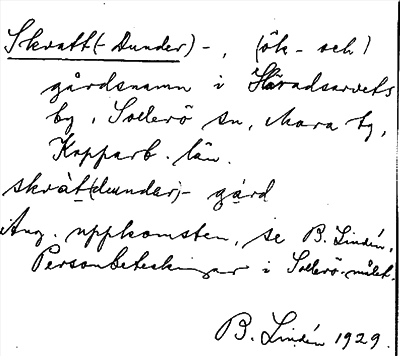 Skratt(-Dunder)-, (ök- och)
gårdsnamn i Häradsarvets
by, Sollerö sn, Mora tg,
Kopparb. län.
skràt(dundər)- gård
Ang. uppkomsten, se B. Lindén,
Personbeteckningar i Sollerömålet.
B. Lindén 1929.